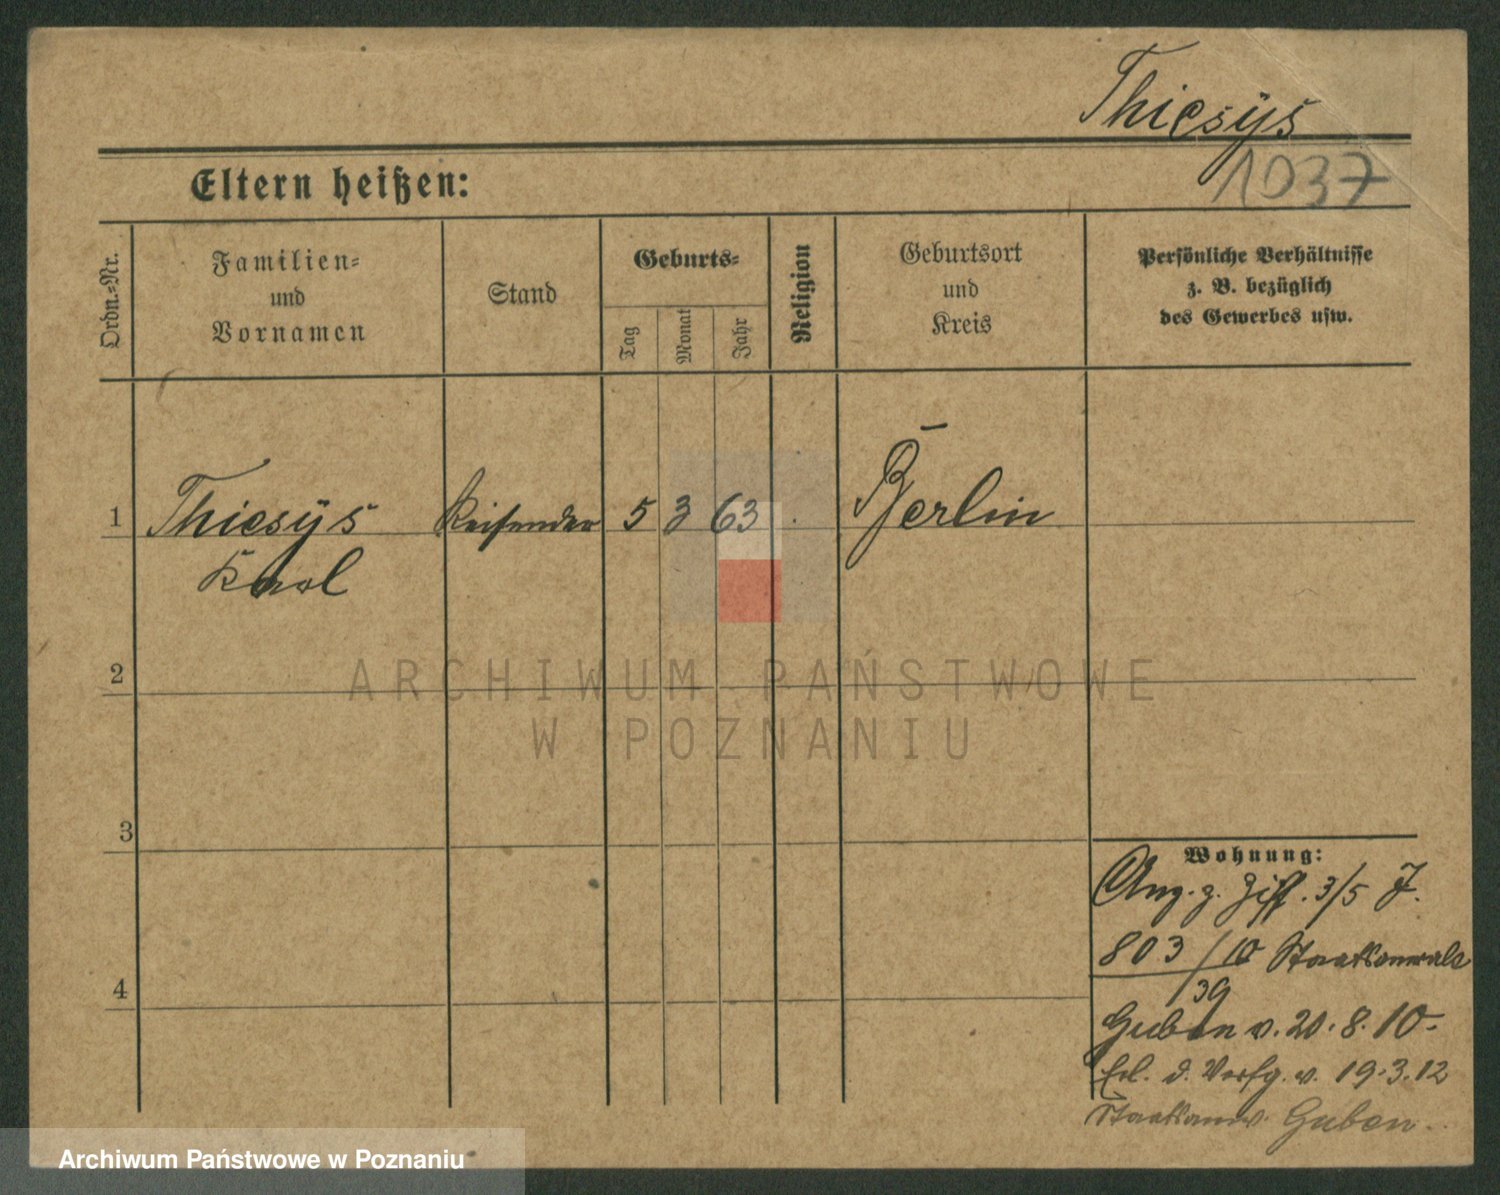 Thiesÿs
1037
Eltern heißen:
Ordn.=Nr.
Familien=
und
Vornamen
Stand
Geburts=
Tag
Monat
Jahr
Religion
Geburtsort
und
Kreis
Persönliche Verhältnisse
z. B. bezüglich
des Gewerbes usw.
1 Thiesÿs Reisender 5 3 63 Berlin
Karl
2
3
4
Wohnung:
Ang. z. Ziff. 3/5 J.
803/10 Staatsanwalt
39
Guben v. 20.8.10.
Erl. d. Verfg. v. 19.3.12
Staatsanw. Guben.
ARCHIWUM PAŃSTWOWE
W POZNANIU
Archiwum Państwowe w Poznaniu